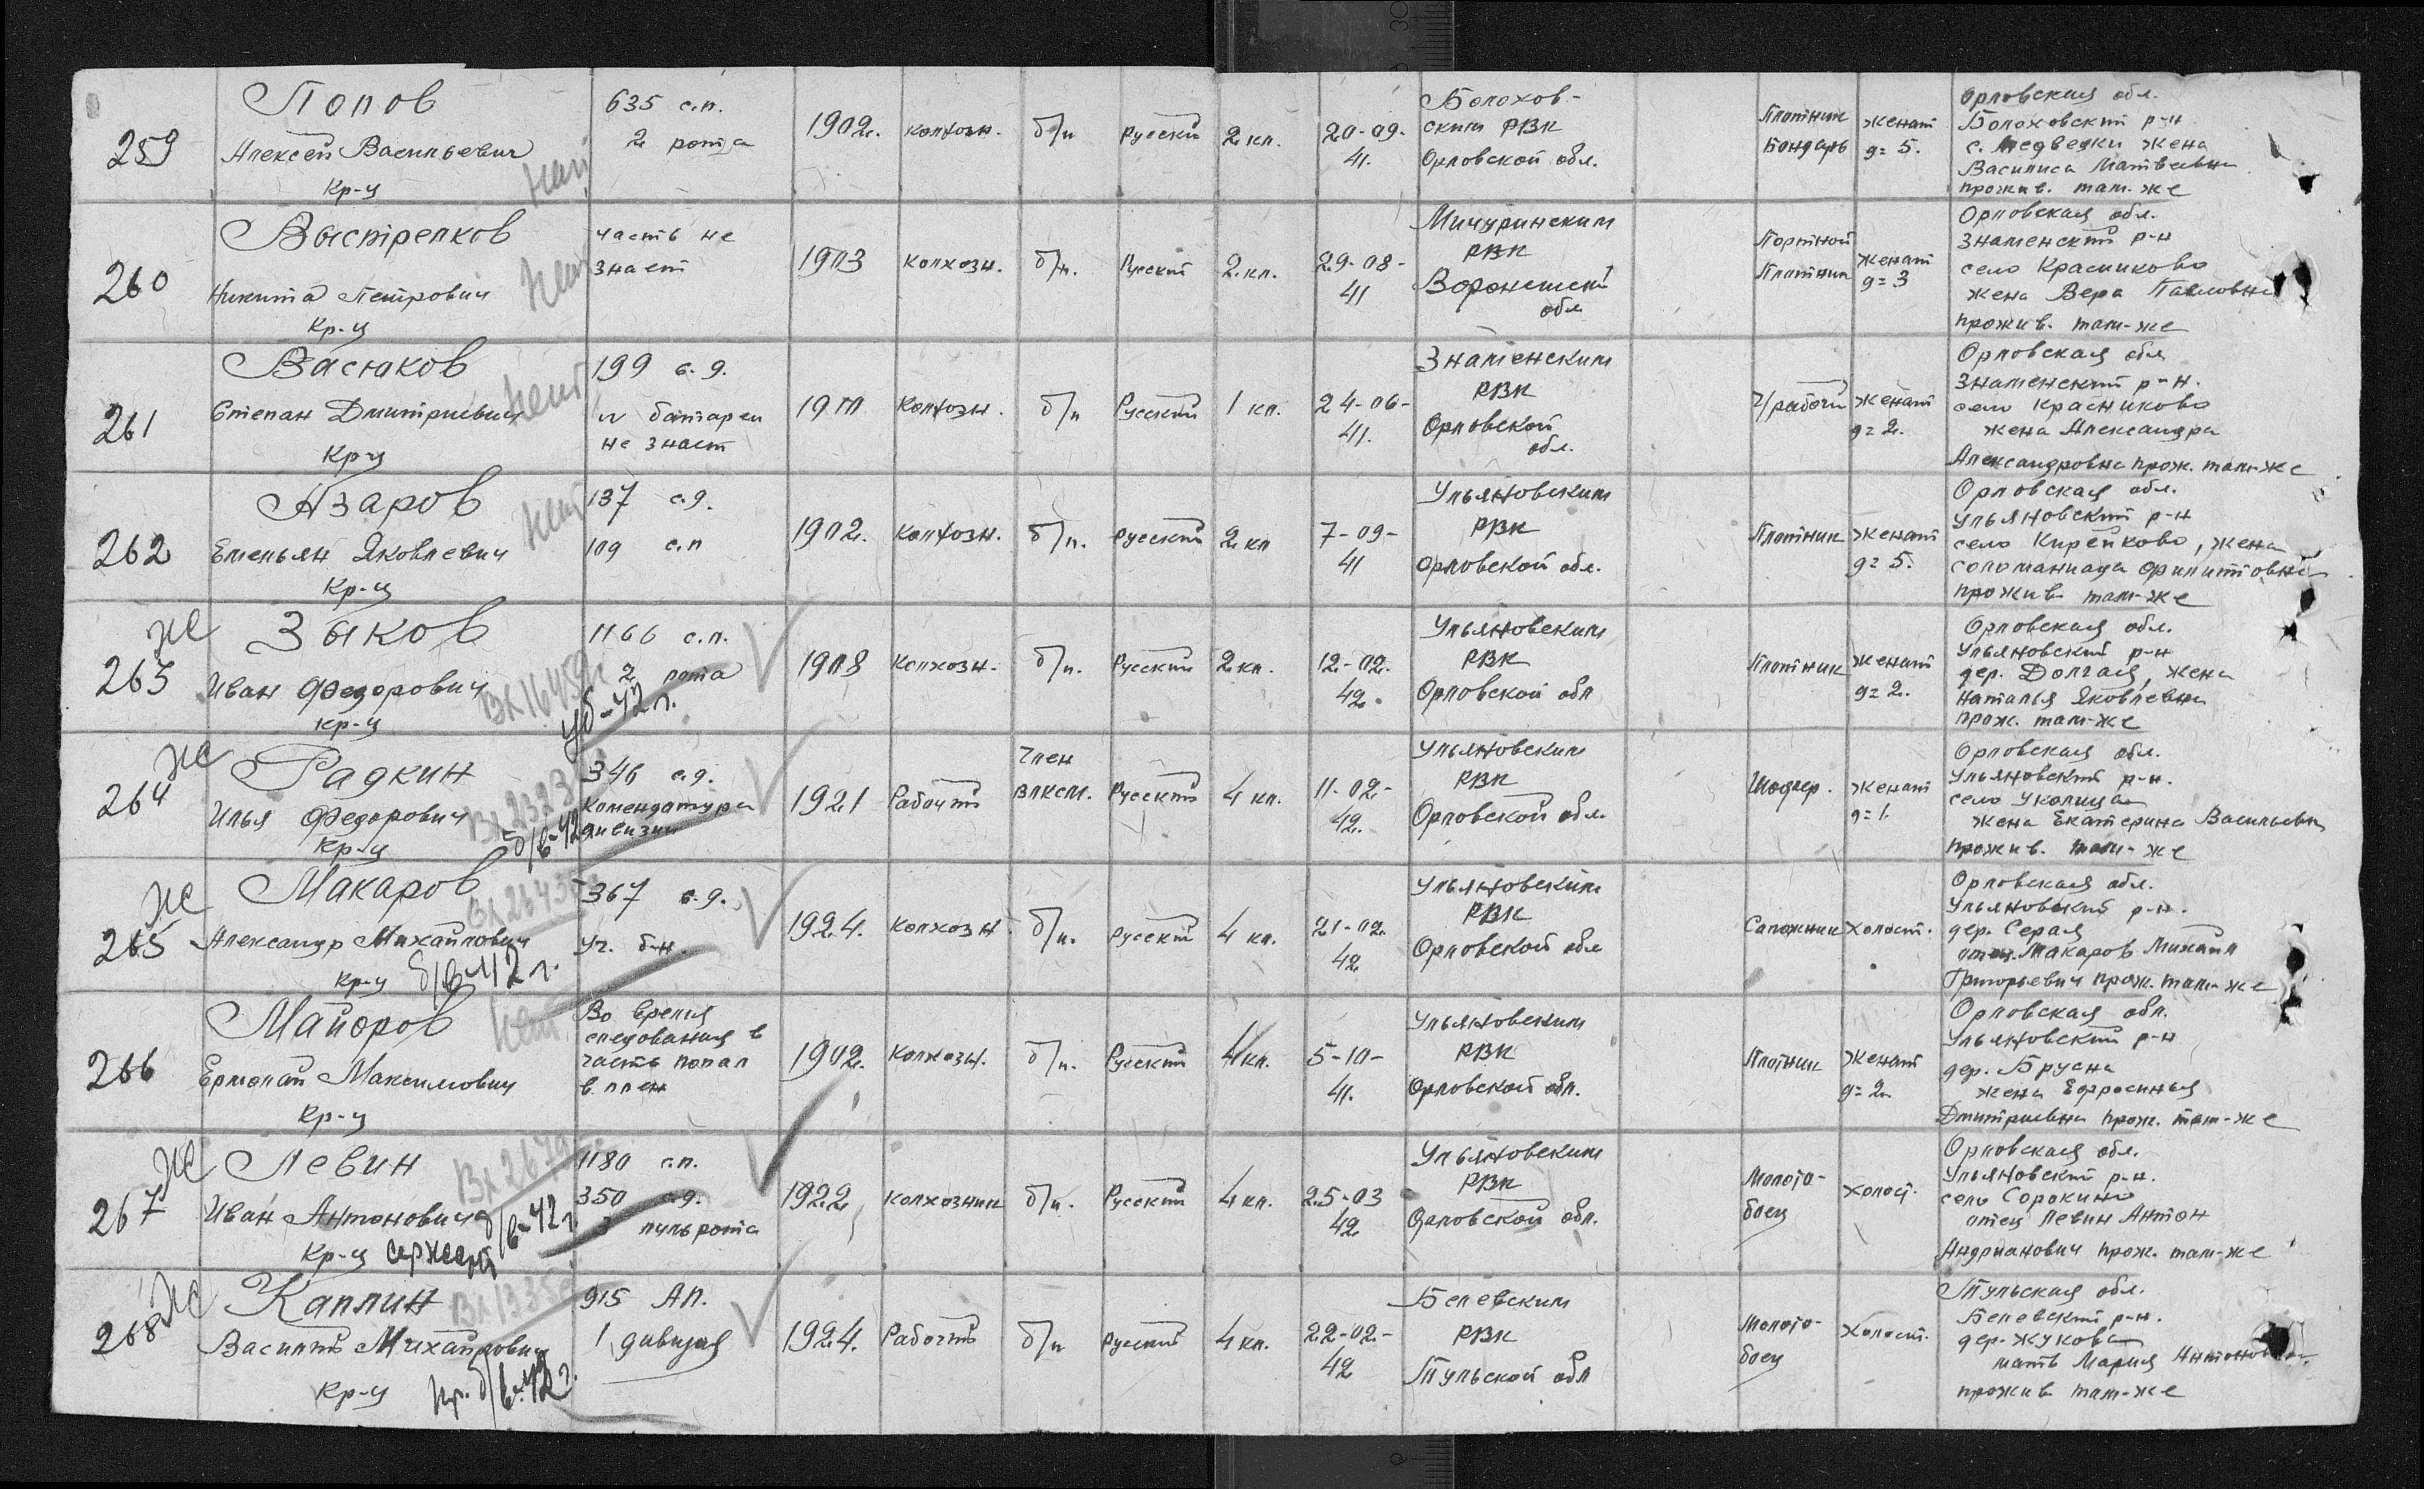 259
Попов
Алексей Васильевич
Кр-ц
нет
635 с.п.
2 рота
1902г.
колхозн.
б/п
русский
2 кл.
20-09-
41.
Болохов-
ским РВК
Орловской обл.
Плотник
Бондарь
женат
д=5.
Орловская обл.
Болоховский р-н
с. Медведки жена
Василиса Матвеевна
прожив. там-же
260
Выстрелков
Никита Петрович
Кр-ц
нет
часть не
знает
1903
колхозн.
б/п.
Русский
2 кл.
29-08-
41
Мичуринским
РВК
Воронежской
обл
Портной
Плотник
женат
д=3
Орловская обл.
Знаменский р-н
село Красниково
жена Вера Павловна
прожив. там-же
261
Васюков
Степан Дмитриевич
Кр-ц
нет
199 с.д.
№ батареи
не знает
Колхозн.
б/п
Русский
1 кл.
24-06-
41.
Знаменским
РВК
Орловской
обл.
Ч/рабочий
женат
д=2.
Орловская обл
Знаменский р-н.
село Красниково
жена Александра
Александровна прож. там-же
262
Азаров
Емельян Яковлевич
Кр-ц
нет
137 с.д.
409 с.п
1902.
Колхозн.
б/п.
русский
2 кл
7-09-
41
Ульяновским
РВК
Орловской обл.
Плотник
женат
д=5.
Орловская обл.
Ульяновский р-н
село Кирейково, жена
Соломанида Филипповна
прожив там-же
263
Зыков
Иван Федорович
кр-ц
1166 с.п.
2 рота
1908
Колхозн.
б/п.
Русский
2 кл.
12-02.
42.
Ульяновским
РВК
Орловской обл
Плотник
женат
д=2.
Орловская обл.
Ульяновский р-н
дер. Долгая, жена
Наталья Яковлевна
прож. там-же
264
Радкин
Илья Федорович
Кр-ц
346 с.д.
Комендатура
дивизии
1921
Рабочий
Член
ВЛКСМ.
Русский
4 кл.
11-02-
42.
Ульяновским
РВК
Орловской обл.
Шофер.
женат
д=1.
Орловская обл.
Ульяновский р-н.
село Уколица
жена Екатерина Васильевна
прожив. там-же
265
Макаров
Александр Михайлович
кр-ц
б/в-42г.
367 с.д.
Уч. б-н.
1924.
Колхозн
б/п.
Русский
4 кл.
21-02.
42
Ульяновским
РВК
Орловской обл
Сапожник
Холост.
Орловская обл.
Ульяновский р-н.
дер. Серая
отец Макаров Михаил
Григорьевич прож. там-же
266
Майоров
Ермолай Максимович
Кр-ц
нет
Во время
следования в
часть попал
в плен
1902.
Колхозн.
б/п.
Русский
4 кл.
5-10-
41.
Ульяновским
РВК
Орловской обл.
Плотник
Женат
д=2
Орловская обл.
Ульяновский р-н
дер. Брусна
жена Ефросинья
Дмитриевна прож. там-же
267
Левин
Иван Антонович
Кр-ц сержант
б/в-42г.
1180 с.п.
350 с.д.
3 пульрота
1922
колхозник
б/п.
Русский
4 кл.
25-03
42
Ульяновским
РВК
Орловской обл.
Молото-
боец
Холост.
Орловская обл.
Ульяновский р-н.
село Сорокино
отец Левин Антон
Андрианович прож. там-же
268
Каплин
Василий Михайлович
Кр-ц
915 АП.
1 дивизия
1924.
Рабочий
б/п
Русский
4 кл.
22-02-
42
Белевским
РВК
Тульской обл
Молото-
боец
Холост.
Тульская обл.
Белевский р-н.
дер. Жукова
мать Мария Антоновна
прожив там-же